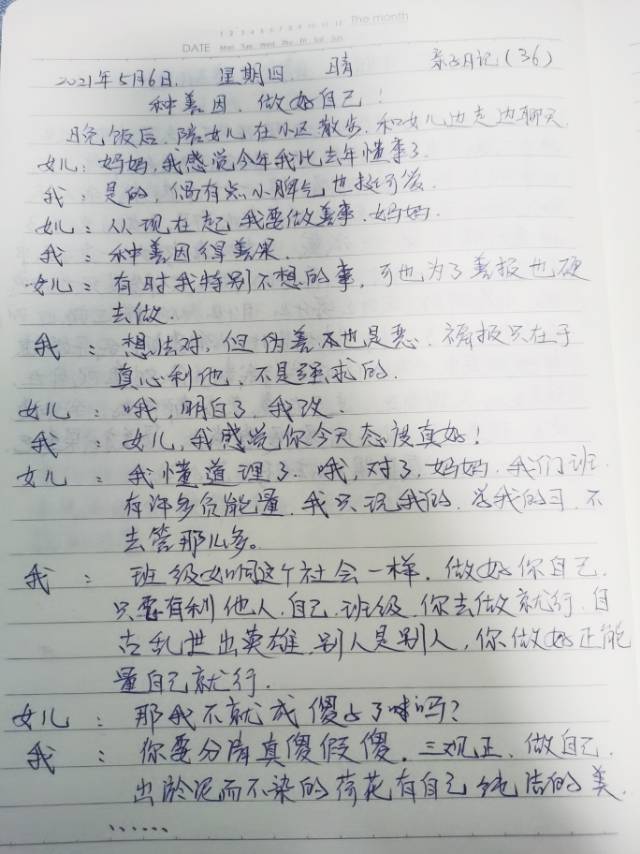 1 2 3 4 5 6 7 8 9 10 11 12 The month
DATE Mon Tue Wed Thu Fri Sat Sun
2021年5月6日. 星期四. 晴 亲子日记(36)
种善因. 做好自己!
晚饭后. 陪女儿在小区散步. 和女儿边走边聊天.
女儿: 妈妈, 我感觉今年我比去年懂事了.
我: 是的, 偶有点小脾气也挺可爱.
女儿: 从现在起 我要做善事. 妈妈.
我: 种善因得善果.
女儿: 有时我特别不想的事. 可也为了善报也硬
去做.
我: 想法对, 但伪善不也是恶. 福报只在于
真心利他, 不是强求的.
女儿: 哦, 明白了. 我改.
我: 女儿, 我感觉你今天态度真好!
女儿: 我懂道理了. 哦, 对了, 妈妈. 我们班
有许多负能量. 我只玩我的. 学我的习. 不
去管那么多。
我: 班级如同这个社会一样. 做好你自己.
只要有利他人. 自己. 班级. 你去做就行. 自
古乱世出英雄. 别人是别人, 你做好正能
量自己就行.
女儿: 那我不就成傻了嘛吗?
我: 你要分清真傻假傻. 三观正. 做自己.
出淤泥而不染的荷花有自己纯洁的美.
......